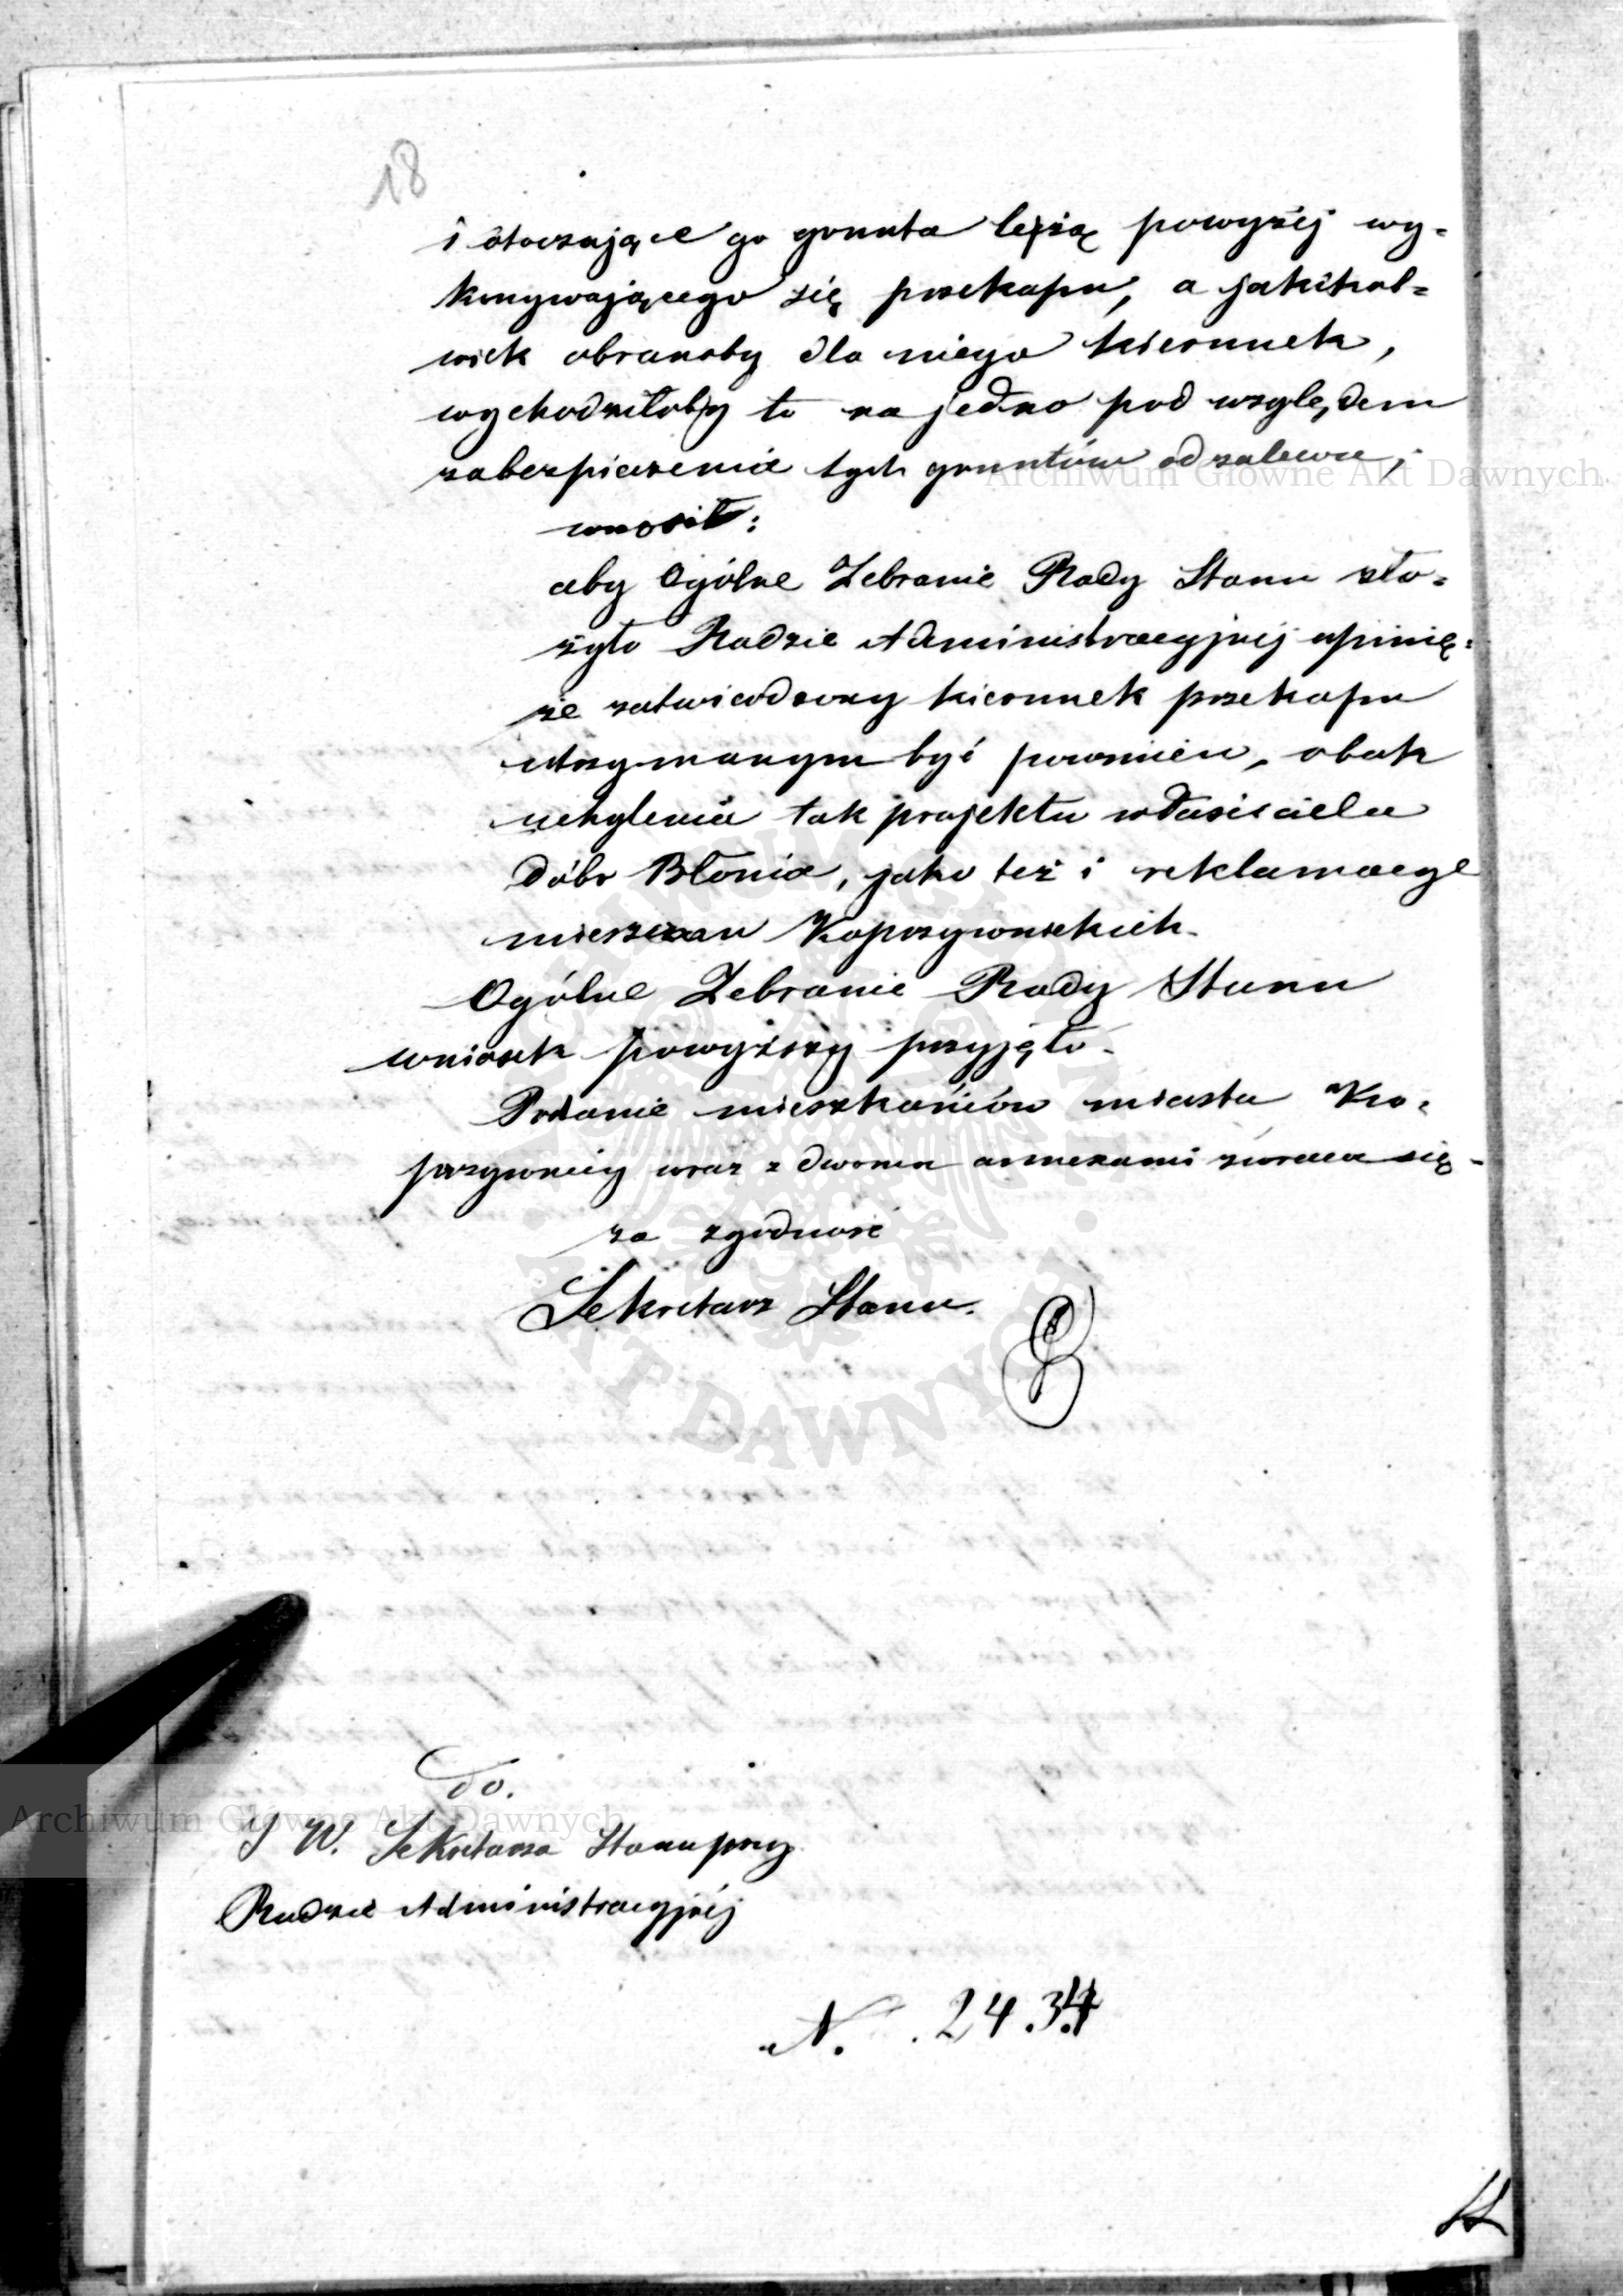 18
i otaczające go grunta leżą powyżej wy=
konywającego się przekopu, a jakikol=
wiek obranoby dla niego kierunek,
wychodziłoby to na jedno pod względem
zabezpieczenia tych gruntów od zalewu;
wnosił:
aby Ogólne Zebranie Rady Stanu zło=
żyło Radzie Administracyjnej opinię:
że zatwierdzony kierunek przekopu
utrzymanym być powinien, obok
uchylenia tak projektu właściciela
dóbr Błonie, jako też i reklamacye
mieszczan Koprzywnickich.
Ogólne Zebranie Rady Stanu
wniosek powyższy przyjęło.
Podanie mieszkańców miasta Ko=
przywnicy wraz z dwoma annexami zwraca się.
za zgodność
Sekretarz Stanu.
do.
J W. Sekretarza Stanu przy
Radzie Administracyjnej
N. 24.34
Archiwum Główne Akt Dawnych
Archiwum Główne Akt Dawnych
ARCHIWUM GŁÓWNE AKT DAWNYCH